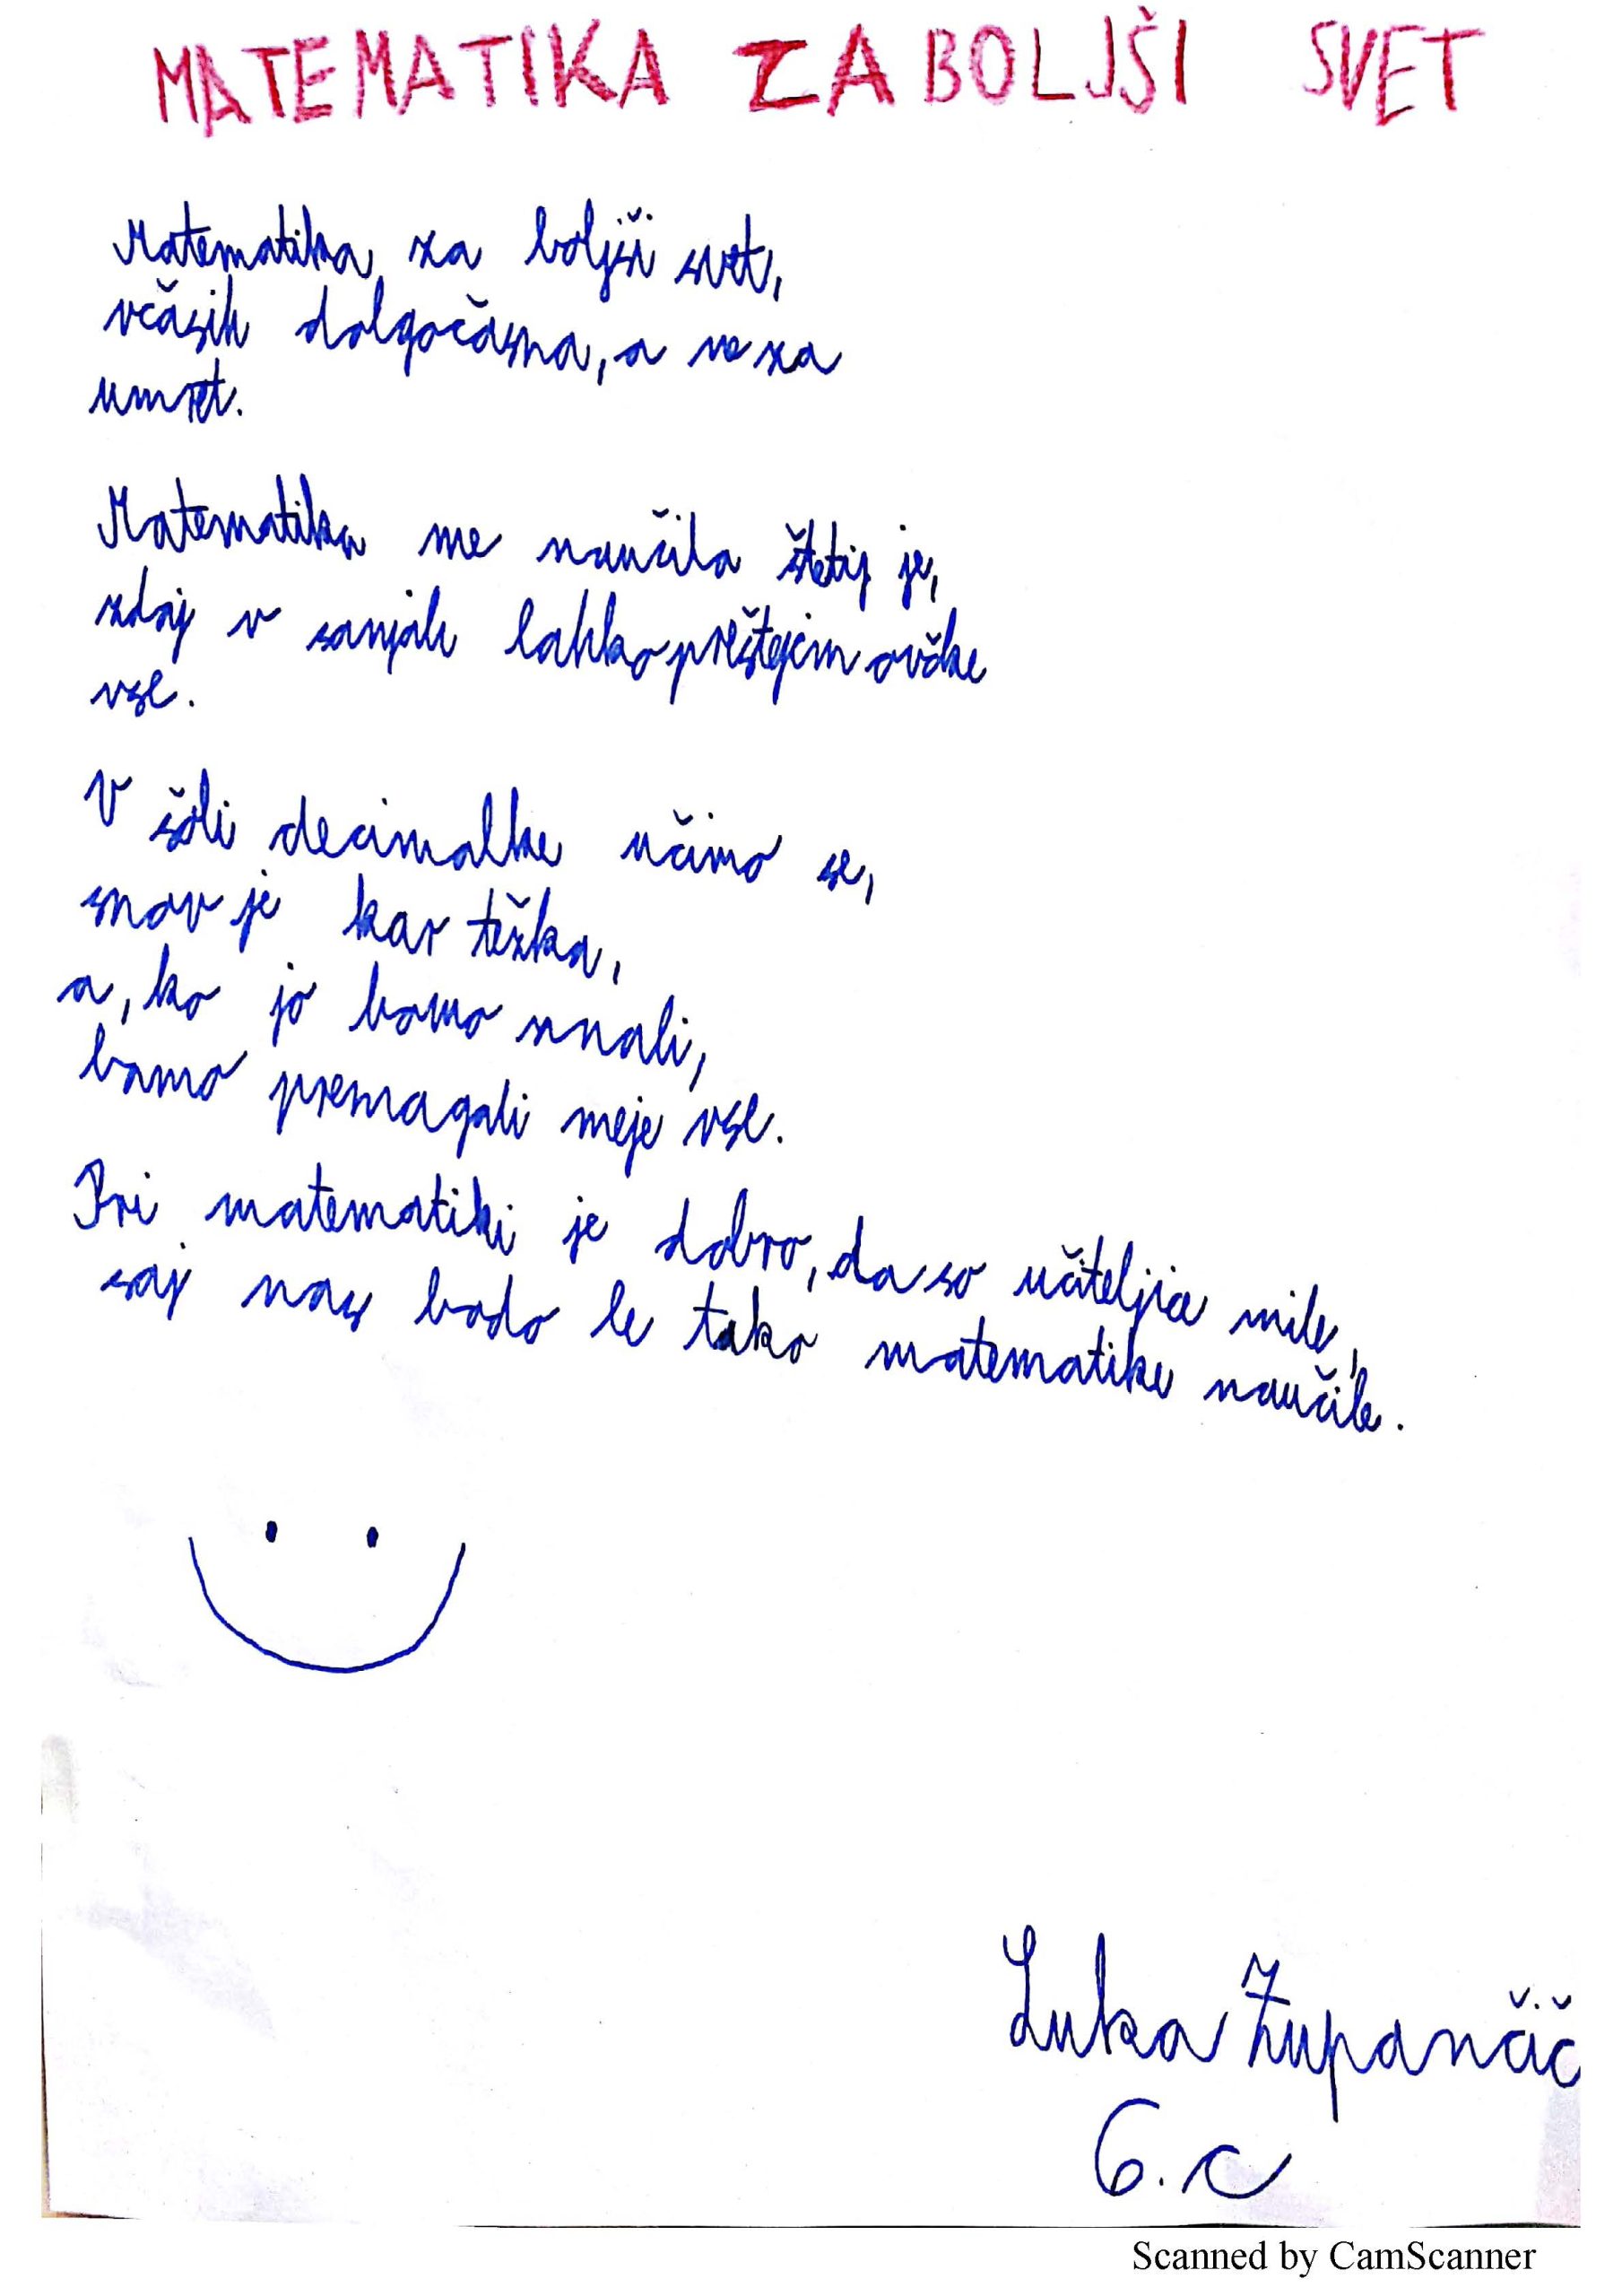 MATEMATIKA ZA BOLJŠI SVET
Matematika za boljši svet,
včasih dolgočasna, a ne za
umret.
Matematika me naučila šteti je,
zdaj v sanjah lahko preštejem ovčke
vse.
V šoli decimalke učimo se,
snov je kar težka,
a, ko jo bomo znali,
bomo premagali meje vse.
Pri matematiki je dobro, da so učiteljice mile,
saj nas bodo le tako matematike naučile.
Luka Župančič
6. c
Scanned by CamScanner